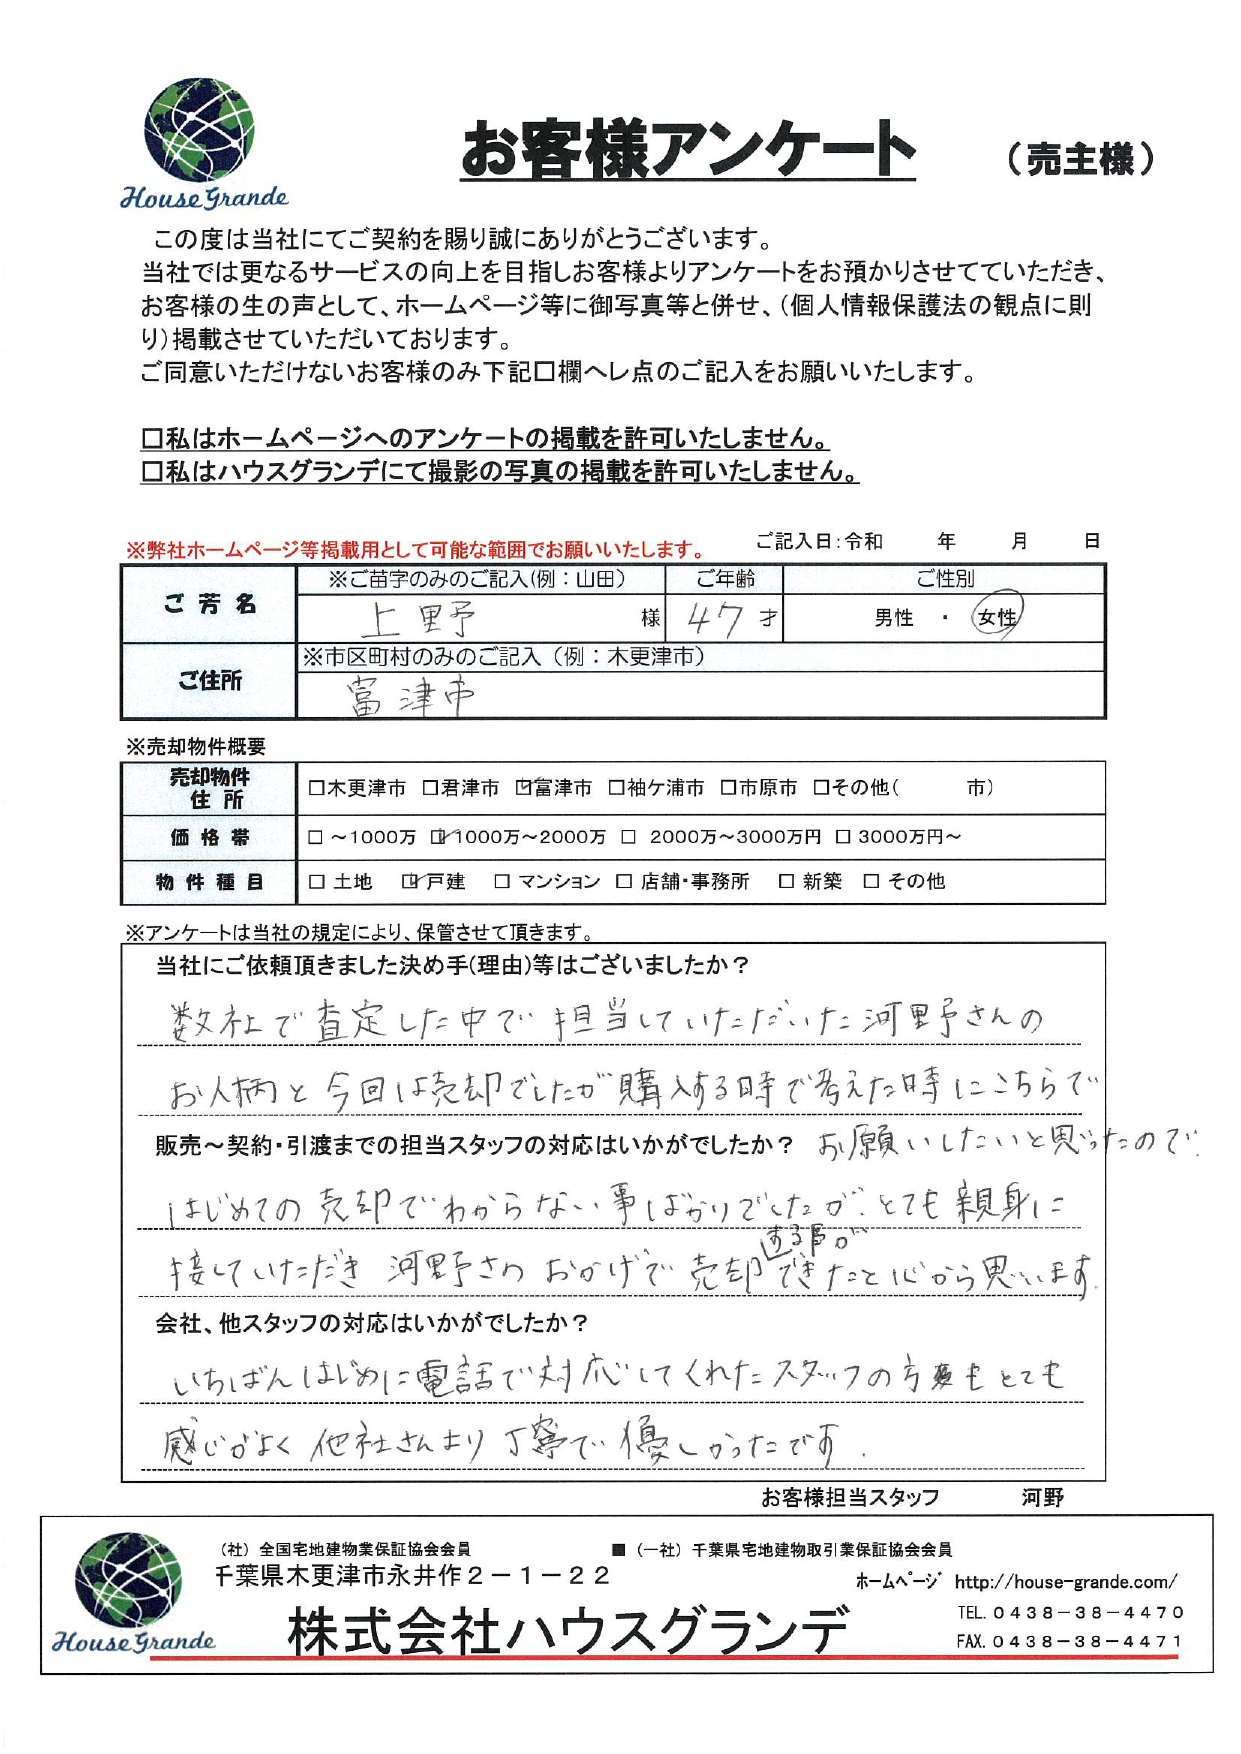 House Grande
お客様アンケート （売主様）
この度は当社にてご契約を賜り誠にありがとうございます。
当社では更なるサービスの向上を目指しお客様よりアンケートをお預かりさせてていただき、
お客様の生の声として、ホームページ等に御写真等と併せ、（個人情報保護法の観点に則
り）掲載させていただいております。
ご同意いただけないお客様のみ下記口欄へレ点のご記入をお願いいたします。
□私はホームページへのアンケートの掲載を許可いたしません。
□私はハウスグランデにて撮影の写真の掲載を許可いたしません。
※弊社ホームページ等掲載用として可能な範囲でお願いいたします。 ご記入日：令和 年 月 日
ご芳名 ※ご苗字のみのご記入(例：山田） ご年齢 ご性別
上野 様 47 才 男性 ・ 女性
ご住所 ※市区町村のみのご記入（例：木更津市）
富津市
※売却物件概要
売却物件 住所 □木更津市 □君津市 ☑富津市 □袖ケ浦市 □市原市 □その他( 市）
価格帯 □ ～1000万 ☑1000万～2000万 □ 2000万～3000万円 □ 3000万円～
物件種目 □ 土地 ☑戸建 □ マンション □ 店舗・事務所 □ 新築 □ その他
※アンケートは当社の規定により、保管させて頂きます。
当社にご依頼頂きました決め手(理由)等はございましたか？
数社で査定した中で 担当していただいた河野さんの
お人柄と 今回は売却でしたが 購入する時で考えた時にこちらで
お願いしたいと思ったので
販売～契約・引渡までの担当スタッフの対応はいかがでしたか？
はじめての売却でわからない事ばかりでしたが、とても親身に
接していただき 河野さん おかげで 売却する事ができたこと心から思います。
会社、他スタッフの対応はいかがでしたか？
いちばんはじめに電話で対応してくれたスタッフの方もとても
感じがよく 他社さんより丁寧で 優しかったです.
お客様担当スタッフ 河野
House Grande
（社）全国宅地建物業保証協会会員 ■（一社）千葉県宅地建物取引業保証協会会員
千葉県木更津市永井作２－１－２２
ホームページ http://house-grande.com/
株式会社ハウスグランデ
TEL. 0438－38－4470
FAX. 0438－38－4471